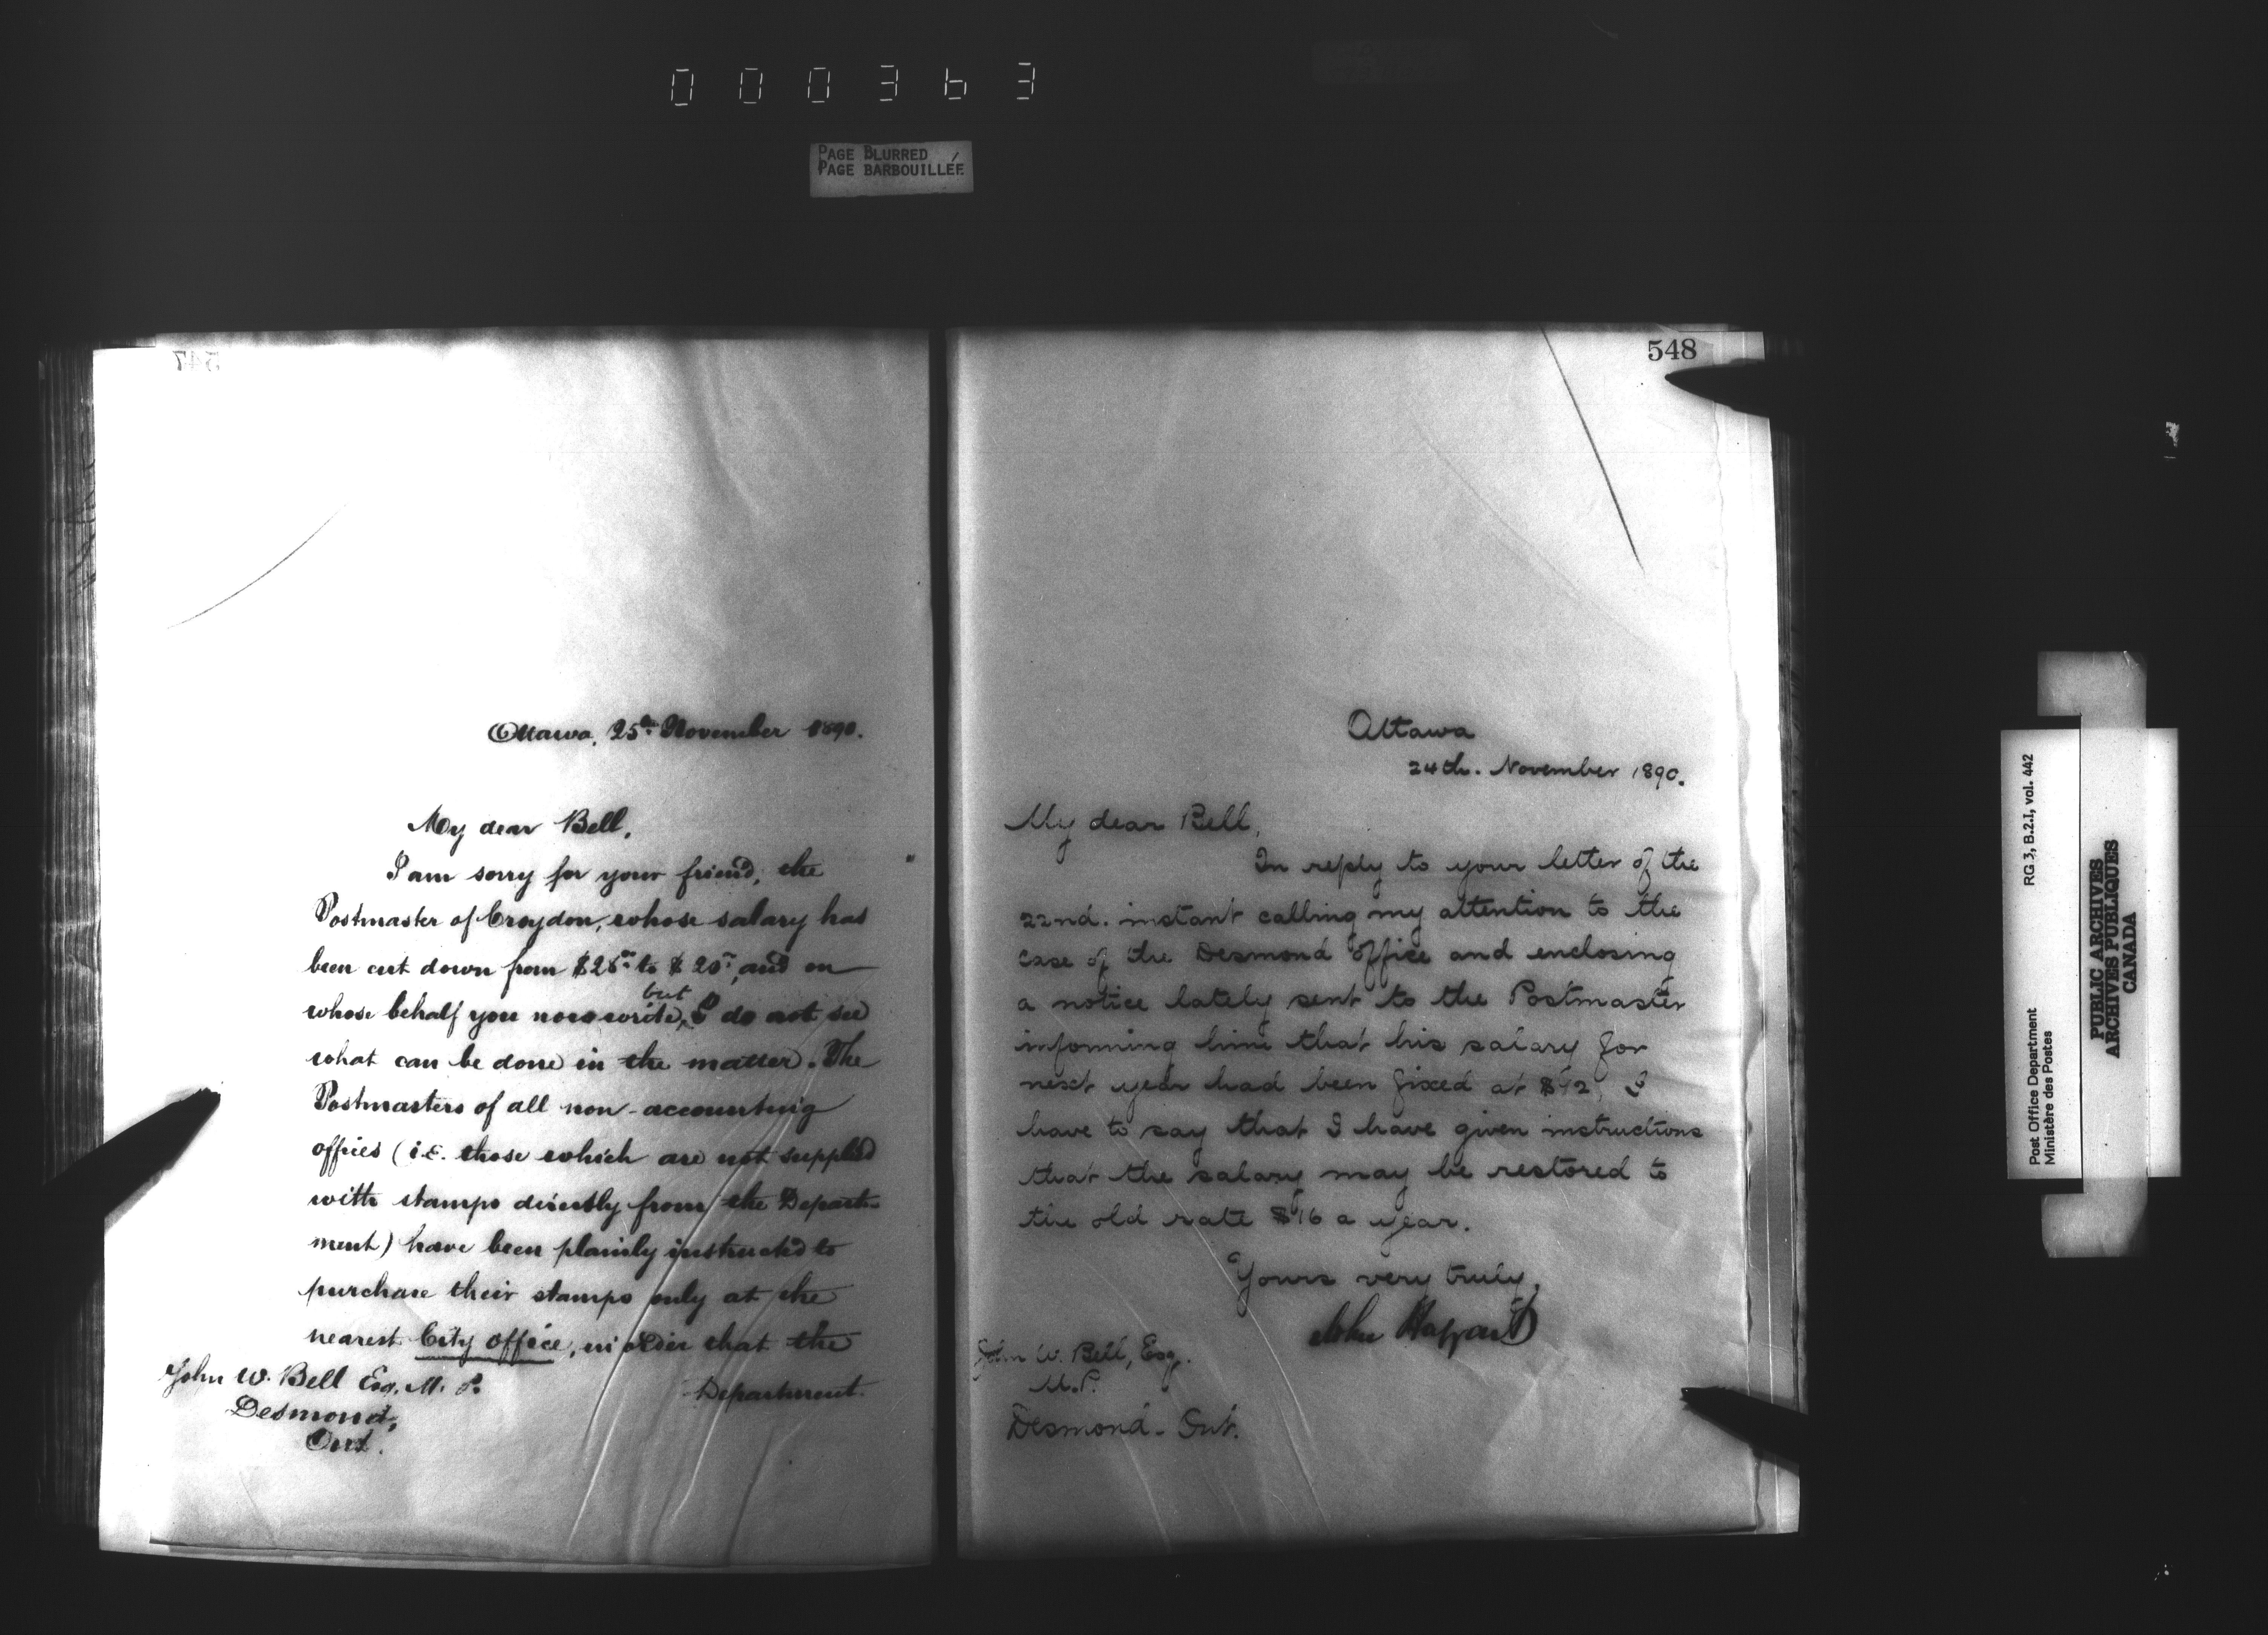 000363
PAGE BLURRED
PAGE BARBOUILLÉE
547
Ottawa, 25th November 1890.
My dear Bell,
I am sorry for your friend, the
Postmaster of Croydon, whose salary has
been cut down from to $20, and on
whose behalf you now write, but I do not see
what can be done in the matter. The
Postmasters of all non-accounting
offices (i.e. those which are not supplied
with stamps directly from the Depart-
ment) have been plainly instructed to
purchase their stamps only at the
nearest City office, in order that the
Department
John W. Bell Esq. M.P.
Desmond,
Ont.
548
Ottawa
24th. November 1890.
My dear Bell,
In reply to your letter of the
22nd. instant calling my attention to the
case of the Desmond Office and enclosing
a notice lately sent to the Postmaster
informing him that his salary for
next year had been fixed at $12, I
have to say that I have given instructions
that the salary may be restored to
the old rate $16 a year.
Yours very truly,
John Haggart
John W. Bell, Esq.
M.P.
Desmond - Ont.
RG 3, B.2.I, vol. 442
Post Office Department
Ministère des Postes
PUBLIC ARCHIVES
ARCHIVES PUBLIQUES
CANADA